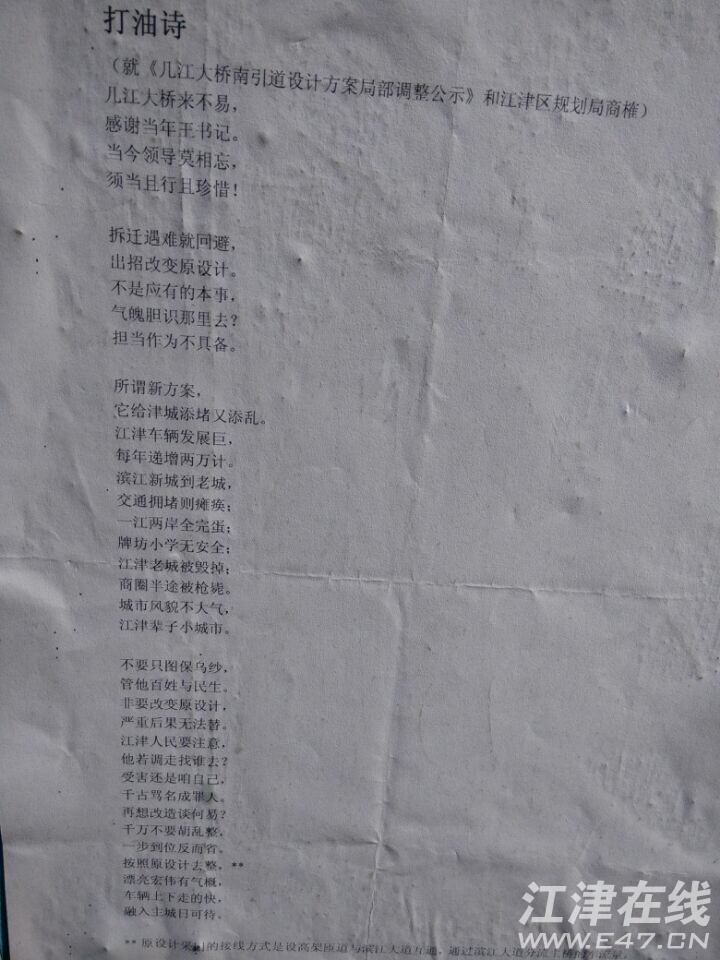 打油诗
（就《几江大桥南引道设计方案局部调整公示》和江津区规划局商榷）
几江大桥来不易，
感谢当年王书记。
当今领导莫相忘，
须当且行且珍惜！
拆迁遇难就回避，
出招改变原设计。
不是应有的本事，
气魄胆识那里去？
担当作为不具备。
所谓新方案，
它给津城添堵又添乱。
江津车辆发展巨，
每年递增两万计。
滨江新城到老城，
交通拥堵则瘫痪；
一江两岸全完蛋；
牌坊小学无安全；
江津老城被毁掉；
商圈半途被枪毙。
城市风貌不大气，
江津辈子小城市。
不要只图保乌纱，
管他百姓与民生。
非要改变原设计，
严重后果无法替。
江津人民要注意，
他若调走找谁去？
受害还是咱自己，
千古骂名成罪人。
再想改造谈何易？
千万不要胡乱整，
一步到位反而省。
按照原设计去整，**
漂亮宏伟有气概，
车辆上下走的快，
融入主城日可待。
**原设计采用的接线方式是设高架匝道与滨江大道互通，通过滨江大道分流上桥的
江津在线
WWW.E47.CN